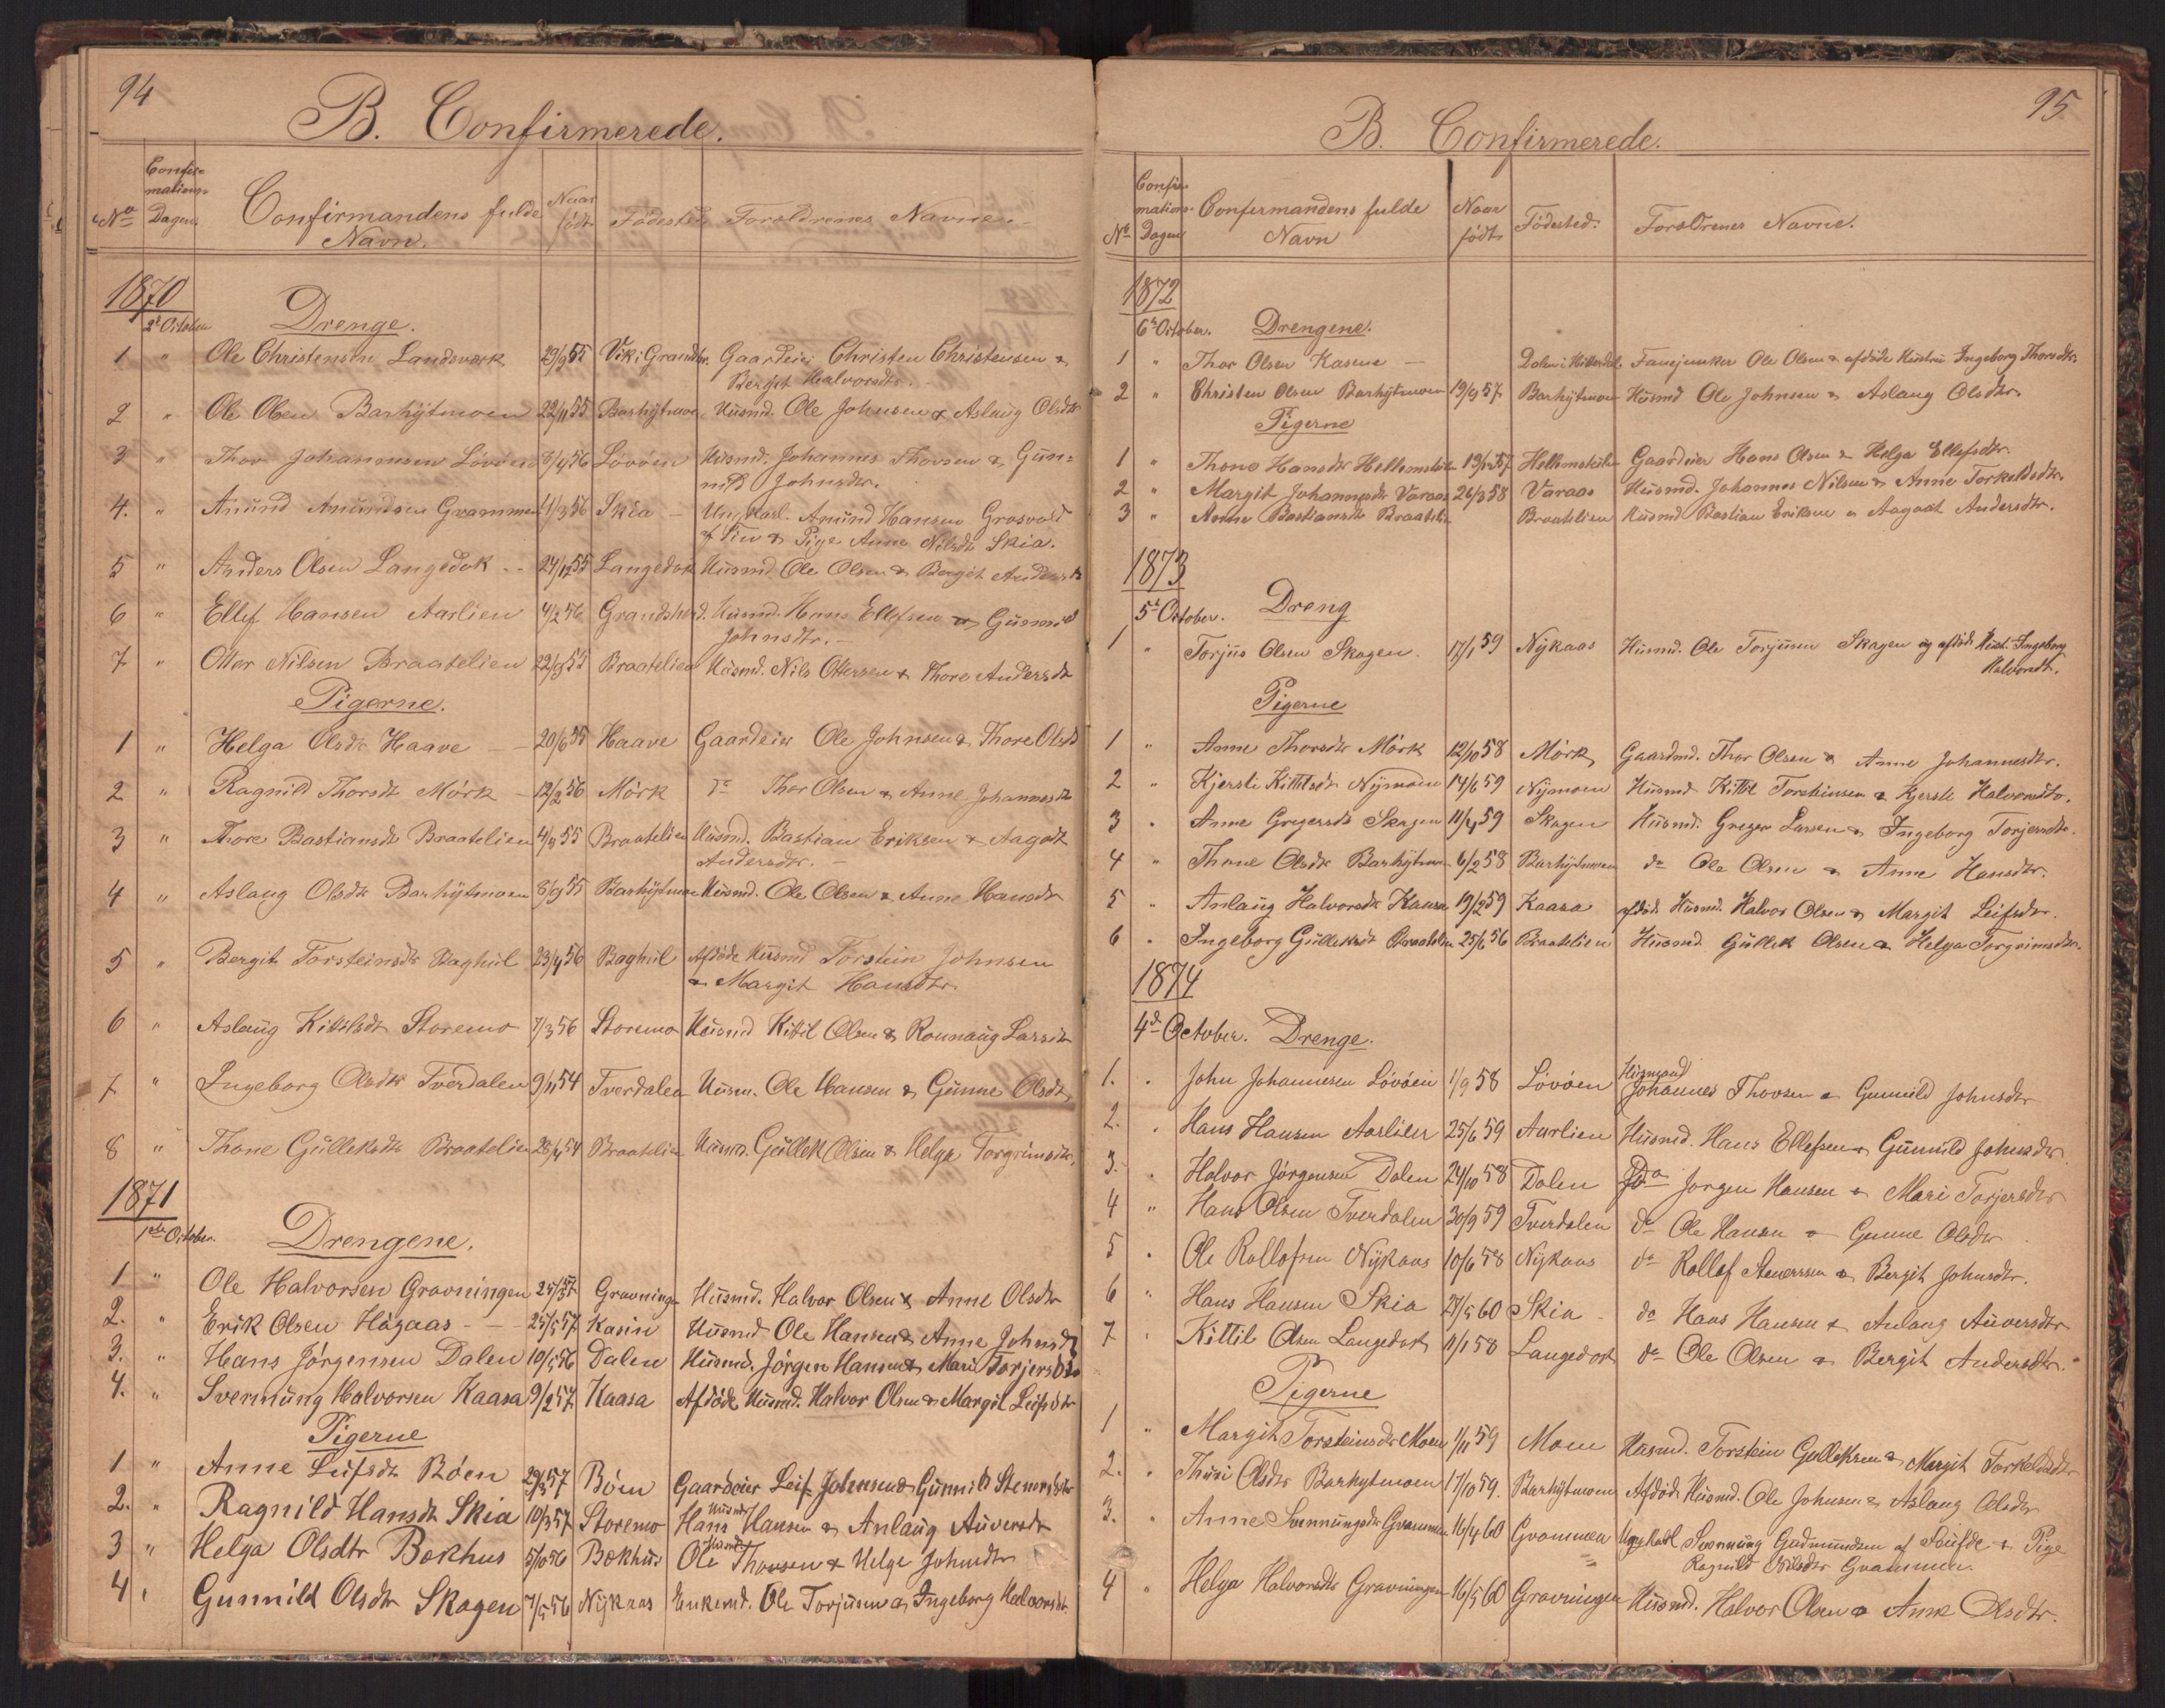 94
B. Confirmerede.
No Confir-mations-Dagen. Confirmandens fulde Navn. Naar født Fødested Forældrenes Navne.
1870
2d October Drenge.
1 " Ole Christensen Landsværk 29/3 55 Vik i Grandshr. Gaardeier Christen Christensen &
Bergit Halvorsdtr.
2 " Ole Olsen Barhÿtmoen 22/11 55 Barhÿtmoen Huusmd. Ole Johnsen & Aslaug Olsdtr
3 " Thor Johannesen Lövöen /4 56 Lövöen Huusmd. Johannes Thorsen & Gun-
nild Johnsdtr.
4. " Amund Amundsen Grammen 11/3 56 Skia – Ungkarl. Amund Hansen Grosvold
af Tin & Pige Anne Nilsdtr Skia.
5 " Anders Olsen Langedok 24/12 55 Langedok Huusmd. Ole Olsen & Bergit Andersdtr
6 " Ellef Hansen Aarlien 4/2 56 Grandsherd. Huusmd. Hans Ellefsen & Gunnild
Johnsdtr. –
7 " Otter Nilsen Braatelien 22/9 55 Braatelien Huusmd. Nils Ottersen & Thore Andersdtr
Pigerne.
1 " Helga Olsdtr Haave – 20/6 55 Haave Gaardeier Ole Johnsen & Thore Olsdtr
2 " Ragnild Thorsdtr Mörk – 12/2 56 Mörk do Thor Olsen & Anne Johannesdtr
3 " Thore Bastiansdtr Braatelien 4/9 55 Braatelien Huusmd. Bastian Eriksen & Aagot
Andersdtr. –
4 " Aslaug Olsdtr Barhÿtmoen 8/9 55 Barhÿtmoen Huusmd. Ole Olsen & Anne Hansdtr
5 " Bergit Torsteinsdtr Baghul 23/4 56 Baghul Afdöde Huusmd Torstein Johnsen
& Margit Hansdtr.
6 " Aslaug Kittilsdtr Storemo 7/3 56 Storemo Huusmd Kittil Olsen & Rounaug Larsdtr
7 " Ingeborg Olsdtr Tverdalen 9/11 54 Tverdalen Huusm. Ole Hansen & Gunne Olsdtr
8 " Thone Gulleksdtr Braatelien 28/4 54 Braatelien Huusm. Gullek Olsen & Helga Torgrimsdtr.
1871
1ste October. Drengene.
1 " Ole Halvorsen Gravningen 25/3 57 Gravningen Huusmd. Halvor Olsen & Anne Olsdtr
2. " Erik Olsen Hagaas – – 25/5 57 Kasin Huusmd Ole Hansen & Anne Johnsdtr
3. " Hans Jörgensen Dalen 10/5 56 Dalen Huusmd. Jörgen Hansen & Mari Torjersdtr
4. " Svennung Halvorsen Kaasa 9/2 57 Kaasa Afdöde Huusmd. Halvor Olsen & Margit Leifsdtr
Pigerne
1 " Anne Leifsdtr Böen 29/3 57 Böen Gaardeier Leif Johnsen & Gunnild Stenersdtr
2. " Ragnild Hansdtr Skia 10/3 57 Storemo Huusmd Hans Hansen & Anlaug Auversdtr
3 " Helga Olsdtr Bækhus 5/10 56 Bækhus Huusmd Ole Thorsen & Helge Johnsdtr
4 " Gunnild Olsdtr Skogen 7/5 56 Nÿkaas Enkemd. Ole Torjusen & Ingeborg Halvorsdtr.
95
B. Confirmerede.
No Confir-mations-Dagen Confirmandens fulde Navn Naar født Fødested. Forældrenes Navne.
1872
6te October. Drengene.
1 " Thor Olsen Kasene – Dalen i Hitterdal Fanejunker Ole Olsen & afdöde Hustru Ingeborg Thorsdtr.
2 " Christen Olsen Barhÿtmoen 19/9 57 Barhÿtmoen Huusmd Ole Johnsen & Aslaug Olsdtr.
Pigerne
1 " Thone Hansdtr 19/2 57 Gaardeier Hans Olsen & Helga Ellefsdtr.
2 " Margit Johannesdtr Varaas 26/3 58 Varaas Huusmd. Johannes Nilsen & Anne Torkeldsdtr.
3 " Anne Bastiansdtr Braatelien Braatelien Huusmd Bastian Eriksen & Aagaat Andersdtr.
1873
5te October. Dreng
1 " Torjus Olsen Skogen. 17/1 59 Nÿkaas Huusmd. Ole Torjusen Skogen og afdöde Hust. Ingeborg
Halvorsdtr.
Pigerne
1 " Anne Thorsdtr Mörk 12/10 58 Mörk Gaardmd. Thor Olsen & Anne Johannesdtr.
2 " Kjersti Kittilsdtr Nÿmoen 14/6 59 Nÿmoen Huusmd Kittil Torsteinsen & Kjersti Halvorsdtr.
3 " Anne Gregersdtr Skogen 11/4 59 Skogen Huusmd. Greger Larsen & Ingeborg Torjersdtr.
4 " Thone Olsdtr Barhÿtmoen 6/2 58 Barhÿtmoen do Ole Olsen & Anne Hansdtr.
5 " Anlaug Halvorsdtr Kaasa 19/2 59 Kaasa afdöde Huusmd. Halvor Olsen & Margit Leifsdtr.
6 " Ingeborg Gulleksdtr Braatelien 25/6 56 Braatelien Huusmd Gullek Olsen & Helga Torgrimsdtr.
1874
4de October. Drenge.
1. " John Johannesen Lövöen 1/9 58 Lövöen Huusmand Johannes Thorsen & Gunnild Johnsdtr
2. " Hans Hansen Aarlien 25/6 59 Aarlien Huusmd. Hans Ellefsen & Gunnild Johnsdtr
3. " Halvor Jörgensen Dalen 24/10 58 Dalen Do Jørgen Hansen & Mari Torjersdtr
4 " Hans Olsen Tverdalen 30/9 59 Tverdalen do Ole Hansen & Gunne Olsdtr
5 " Ole Rollefsen Nÿkaas 10/6 58 Nÿkaas do Rollef Stenersen & Bergit Johnsdtr.
6 " Hans Hansen Skia 27/5 60 Skia do Hans Hansen & Anlaug Auversdtr
7 " Kittil Olsen Langedok 11/1 58 Langedok do Ole Olsen & Bergit Andersdtr.
Pigerne
1 " Margit Torsteinsdtr Moen 1/11 59 Moen Huusmd. Torstein Gulleksen & Margit Torkeldsdtr
2. " Thuri Olsdtr Barhytmoen 17/10 59. Barhÿtmoen Afdöde Huusmd. Ole Johnsen & Aslaug Olsdtr
3. " Anne Svennungsdtr Grammen 16/4 60 Grammen Ungkarl Svennung Gudmundsen af Saufde & Pige
Ragnild Nilsdtr Grammen.
4 " Helga Halvorsdtr Gravningen 16/5 60 Gravningen Huusmd. Halvor Olsen & Anne Olsdtr.